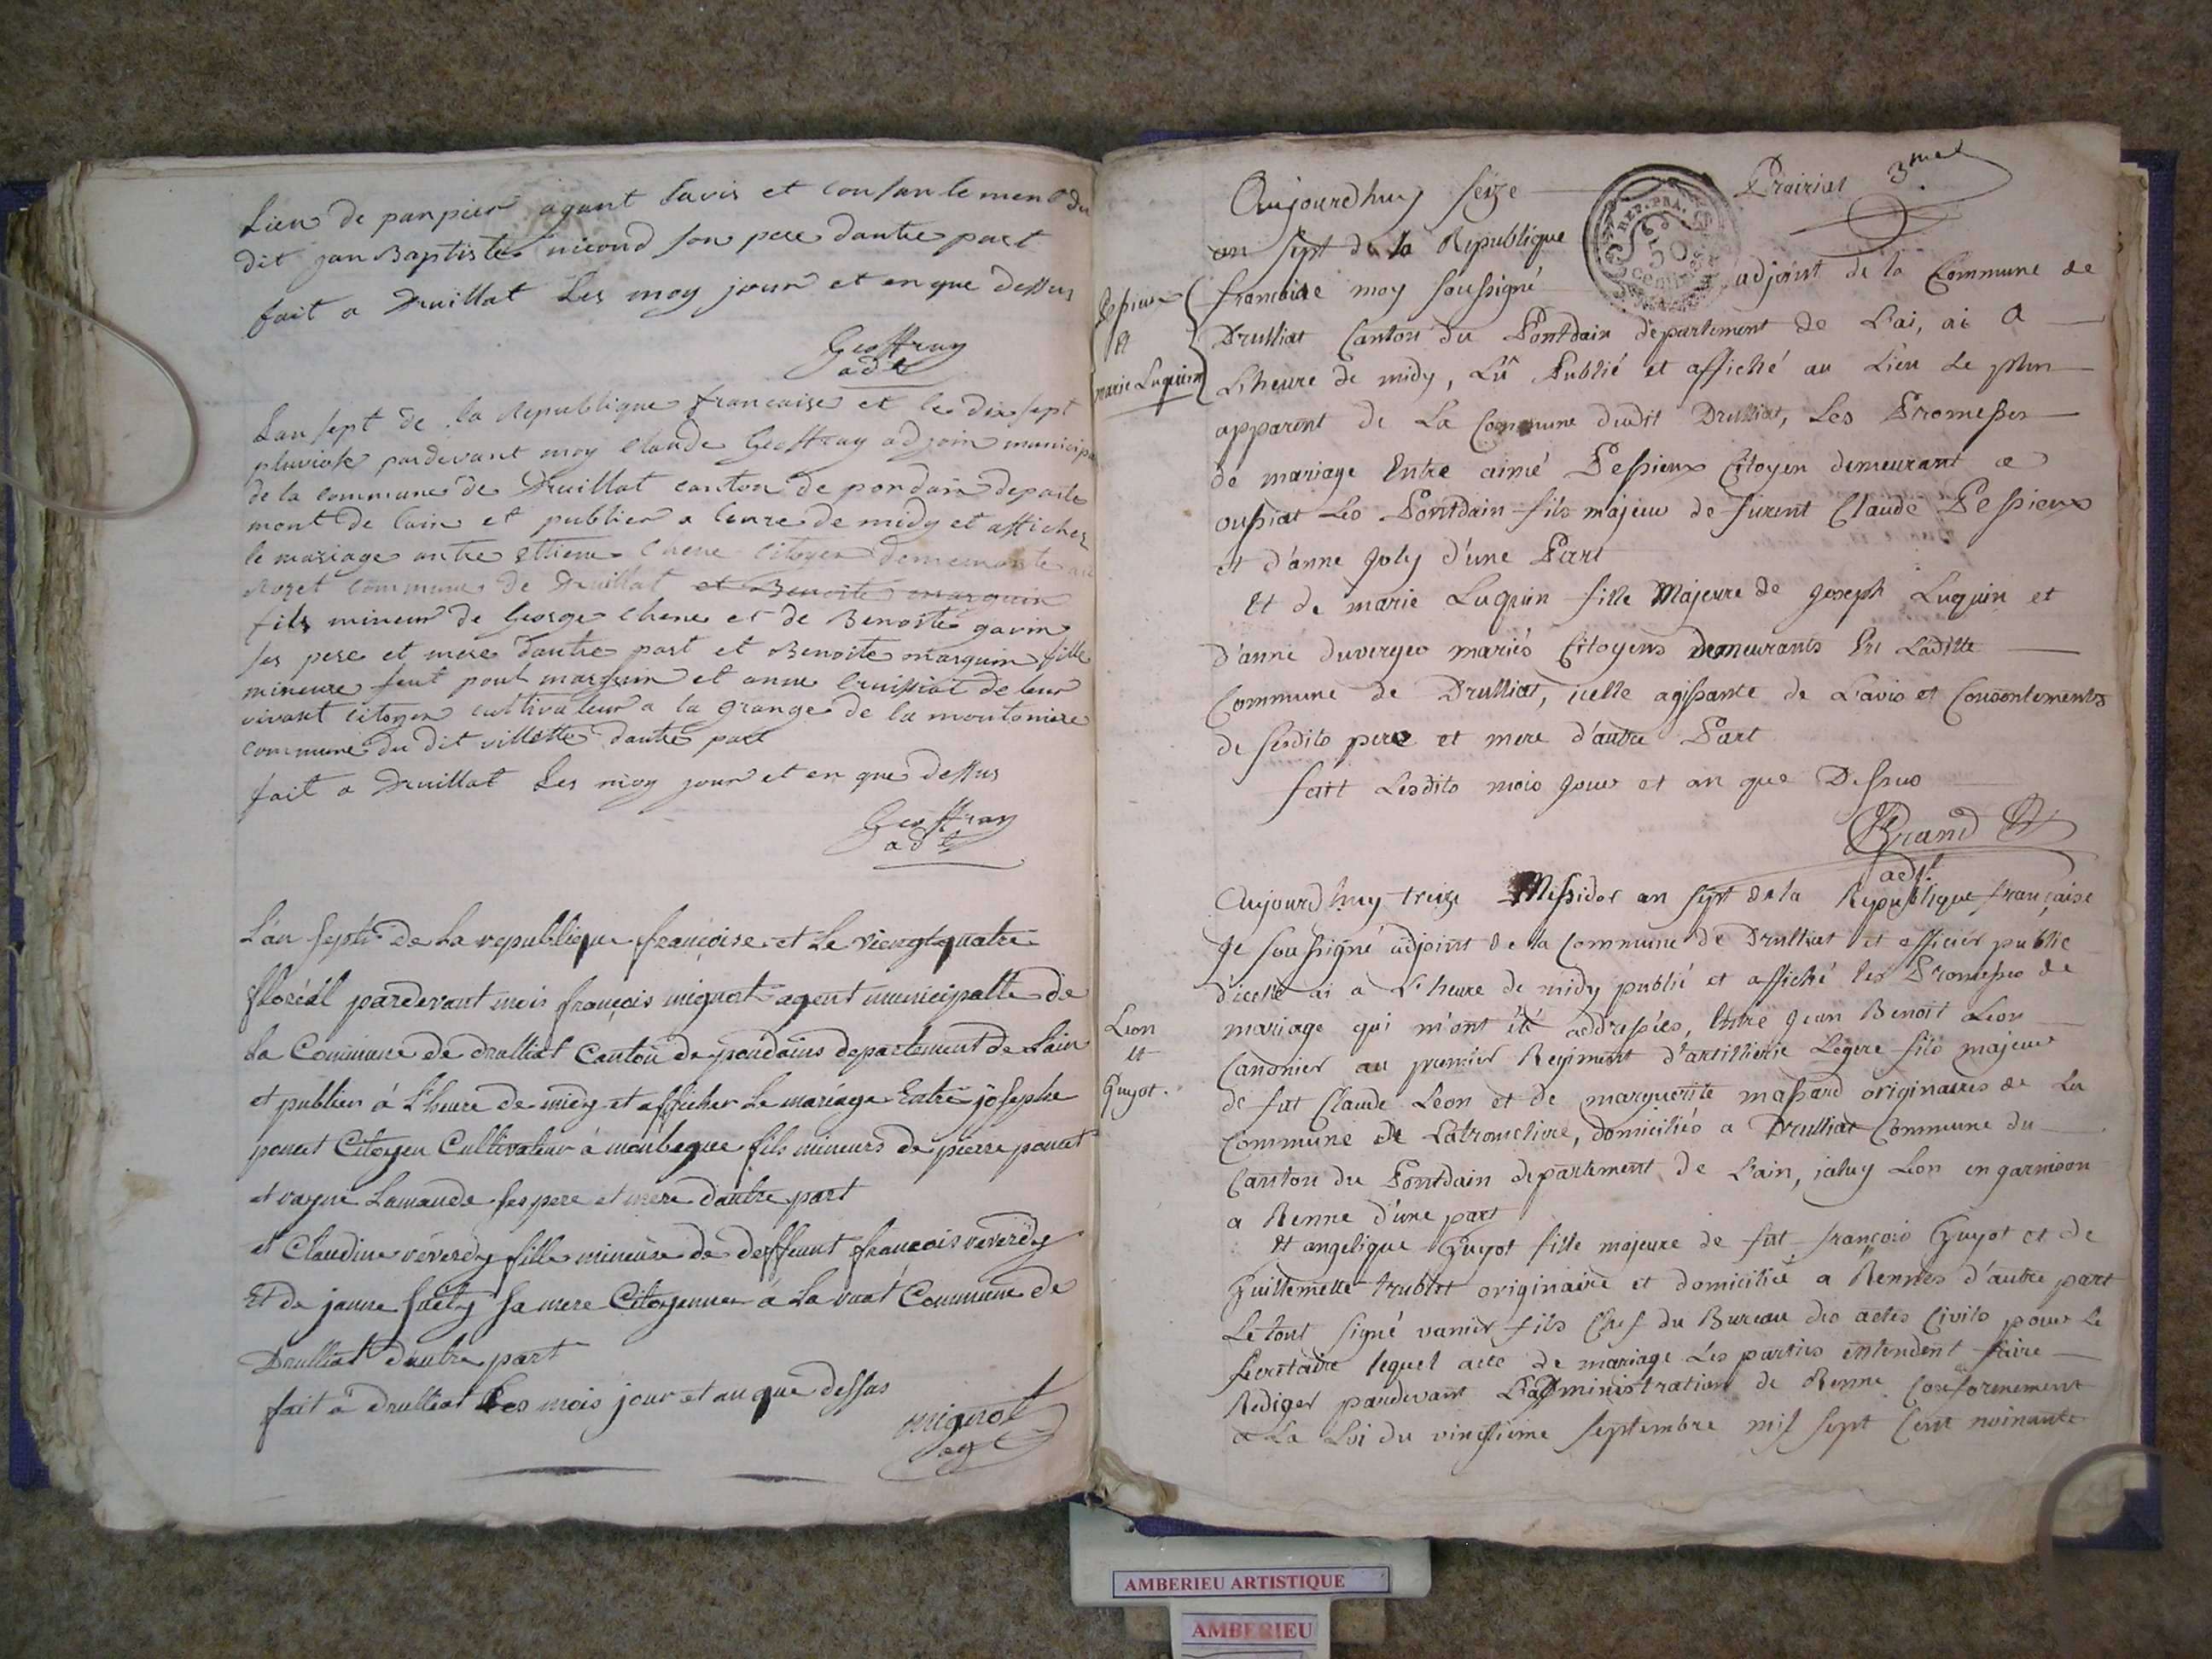 Lieu de panpier agant lavis et consantement du
dit jan Baptiste nicond son pere dautre part
fait a Druillat Les moy jour et en que dessus
Geoffray
adt
Lan sept de la Republique francaise et le dix sept
pluviose pardevant moy Claude Geoffray adjoin municip
de la commune de Druillat canton de pondain departe
mont de lain et publier a leure de midy et afficher
le mariage antre ettiene Chene Citoyen demeurante au
Rozet commune de Druillat et Benoite marguin
fils mineur de George Chene et de Benoite gavin
ses pere et mere dautre part et Benoite marguin fille
mineure feut poul marguin et anne Cruissiat de leur
vivant citoyen cultivateur a la grange de la moutoniere
commune du dit villette dautre part
fait a Druillat Les moy jour et en que dessus
Geoffray
adt
L'an Septe de La republique françoise et Le viengtquatre
floréal pardevant mois françois mignot agent municipalle de
La Commune de drulliat Canton de pondains departement de Lain
et publier á L'heure de midy et afficher Le mariage Entre josephe
poncet Citoyen Cultivateur á monbegue fils mineurs de pierre poncet
et Lamande ses pere et mere dautre part
et Claudine réverdy fille mineure de deffeunt françois reverdy
Et de janne Suety Sa mere Citoyenne á La ruat Commune de
Drulliat dautre part
fait á drulliat Les mois jour et an que dessus
mignot
agt
3me
Aujourdhuy seize Prairial
an sept de la Republique
REP. FRA.
50
CENTIMES
francaise moy soussigné adjoint de la Commune de
Pessieux
et
marie Luquin
Drulliat Canton du Pontdain departement de L'ai, ai a
L'heure de midy, Lû Publié et affiché au Lieu Le plus
apparent de La Commune dudit Drulliat, Les Promesses
de mariage Entre aimé Pessieux Citoyen demeurant a
oussiat Les Pontdain fils majeur de furent Claude Pessieux
et d'anne Joly d'une Part
Et de marie Luquin fille Majeure de Joseph Luquin et
d'anne duverger mariés Citoyens demeurants En Laditte
Commune de Drulliat, icelle agissante de L'avis et Consentements
de sesdits pere et mere d'autre Part
fait Lesdits mois Jour et an que Dessus
Brand
adjt
Aujourd'huy treize Messidor an sept de la Republique française
Je soussigné adjoint de la Commune de Drulliat et officier public
d'icelle ai a L'heure de midy publié et affiché les Promesses de
Leon
et
Guyot.
mariage qui m'ont été addressées, Entre Jean Benoit Leon
Canonier au premier Regiment d'artillerie Legere fils majeur
de fut Claude Leon et de marguerite massard originaires de La
Commune de Latroncliere, domiciliés a Drulliat Commune du
Canton du Pontdain departement de L'ain, jaluy Leon en garnison
a Renne d'une part
Et angelique Guyot fille majeure de fut françois Guyot et de
Guillemette trublet originaire et domiciliée a Rennes d'autre part
Le tout signé vanier fils Chef du Bureau des actes Civils pour Le
Secretaire lequel acte de mariage Les parties entendent faire
Rediger pardevant L'administration de Renne Conformement
a La Loi du vingtieme septembre mil sept Cent noinante
AMBERIEU ARTISTIQUE
AMBERIEU